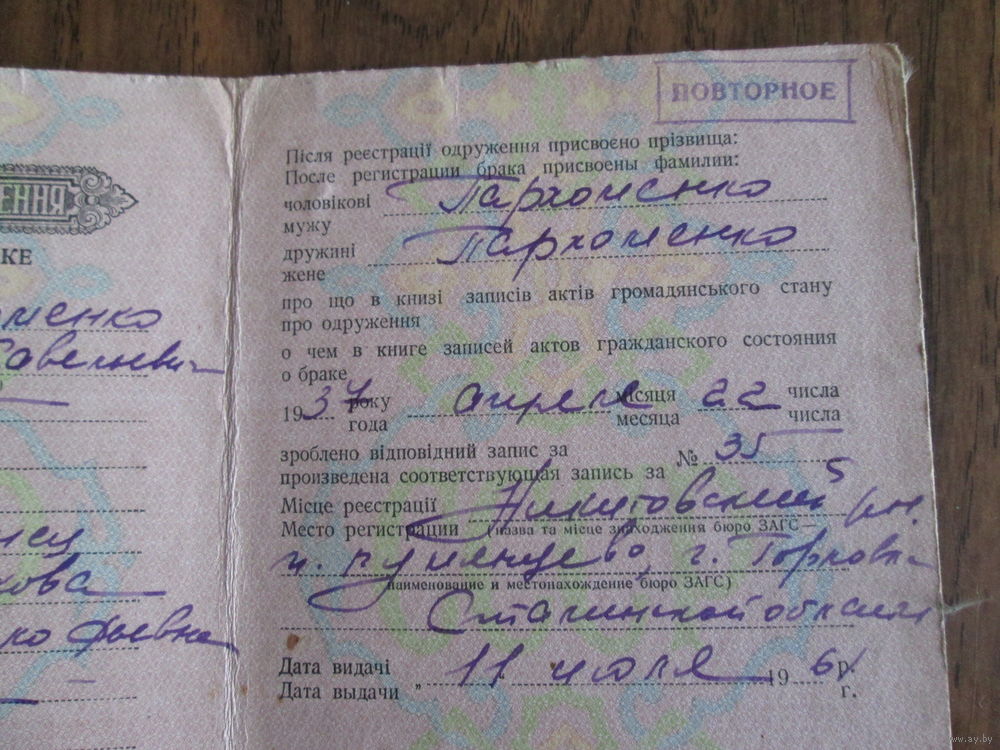 ЕННЯ
КЕ
оменко
Савельеви
кова
фьевна
ПОВТОРНОЕ
Після реєстрації одруження присвоєно прізвища:
После регистрации брака присвоены фамилии:
чоловікові Пархоменко
мужу
дружині Пархоменко
жене
про що в книзі записів актів громадянського стану
про одруження
о чем в книге записей актов гражданского состояния
о браке
1937 року апреля місяця 22 числа
года месяца числа
зроблено відповідний запис за
произведена соответствующая запись за № 35
Місце реєстрації Никитовский рн.
Место регистрации (назва та місце знаходження бюро ЗАГС —
г. Горловка
наименование и местонахождение бюро ЗАГС)
Сталинской области
Дата видачі 11 июля 1961 р.
Дата выдачи „ г.
www.ay.by